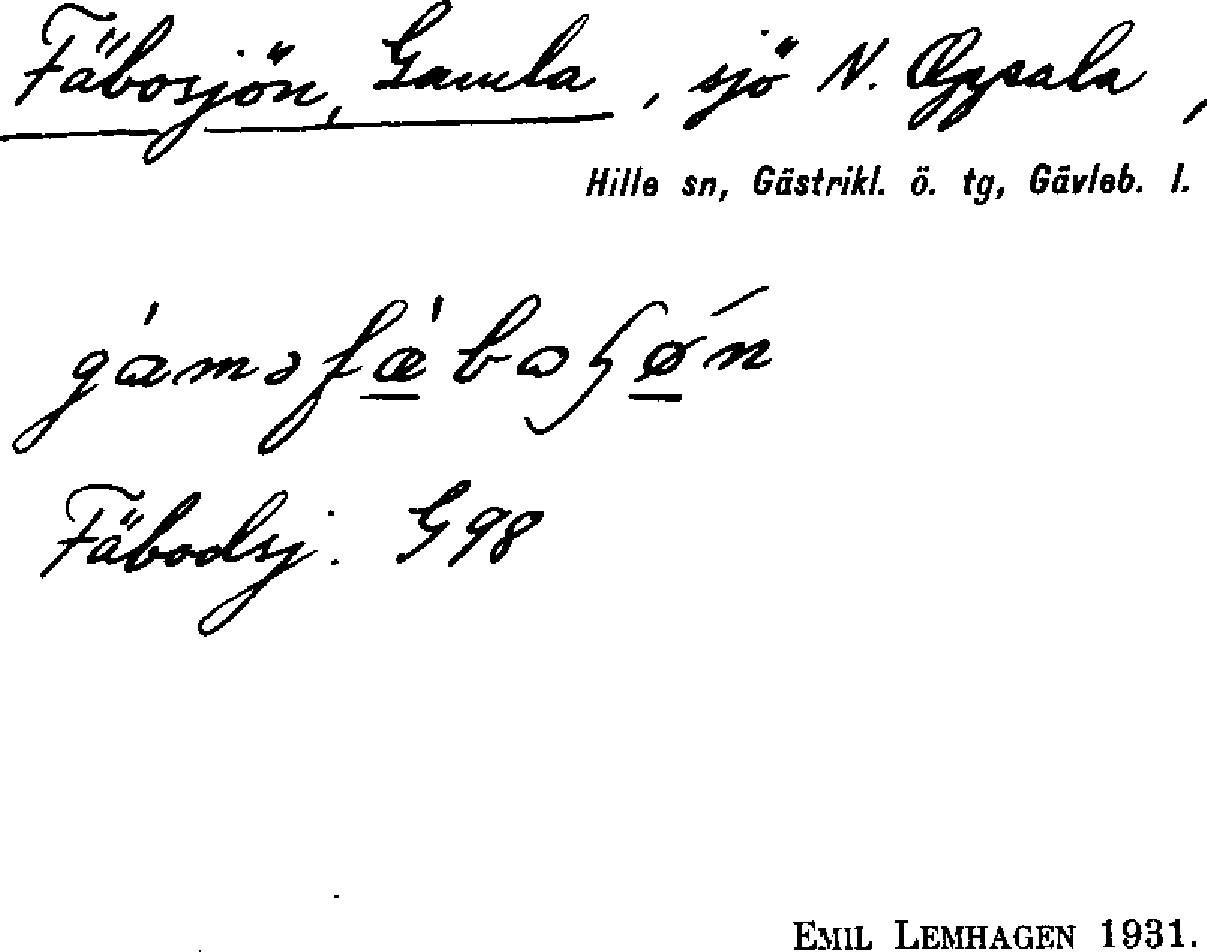 Fäbosjön, Gamla, sjö N. Oppsala,
Hille sn, Gästrikl. ö. tg, Gävleb. l.
Fäbodsj. G98
EMIL LEMHAGEN 1931.